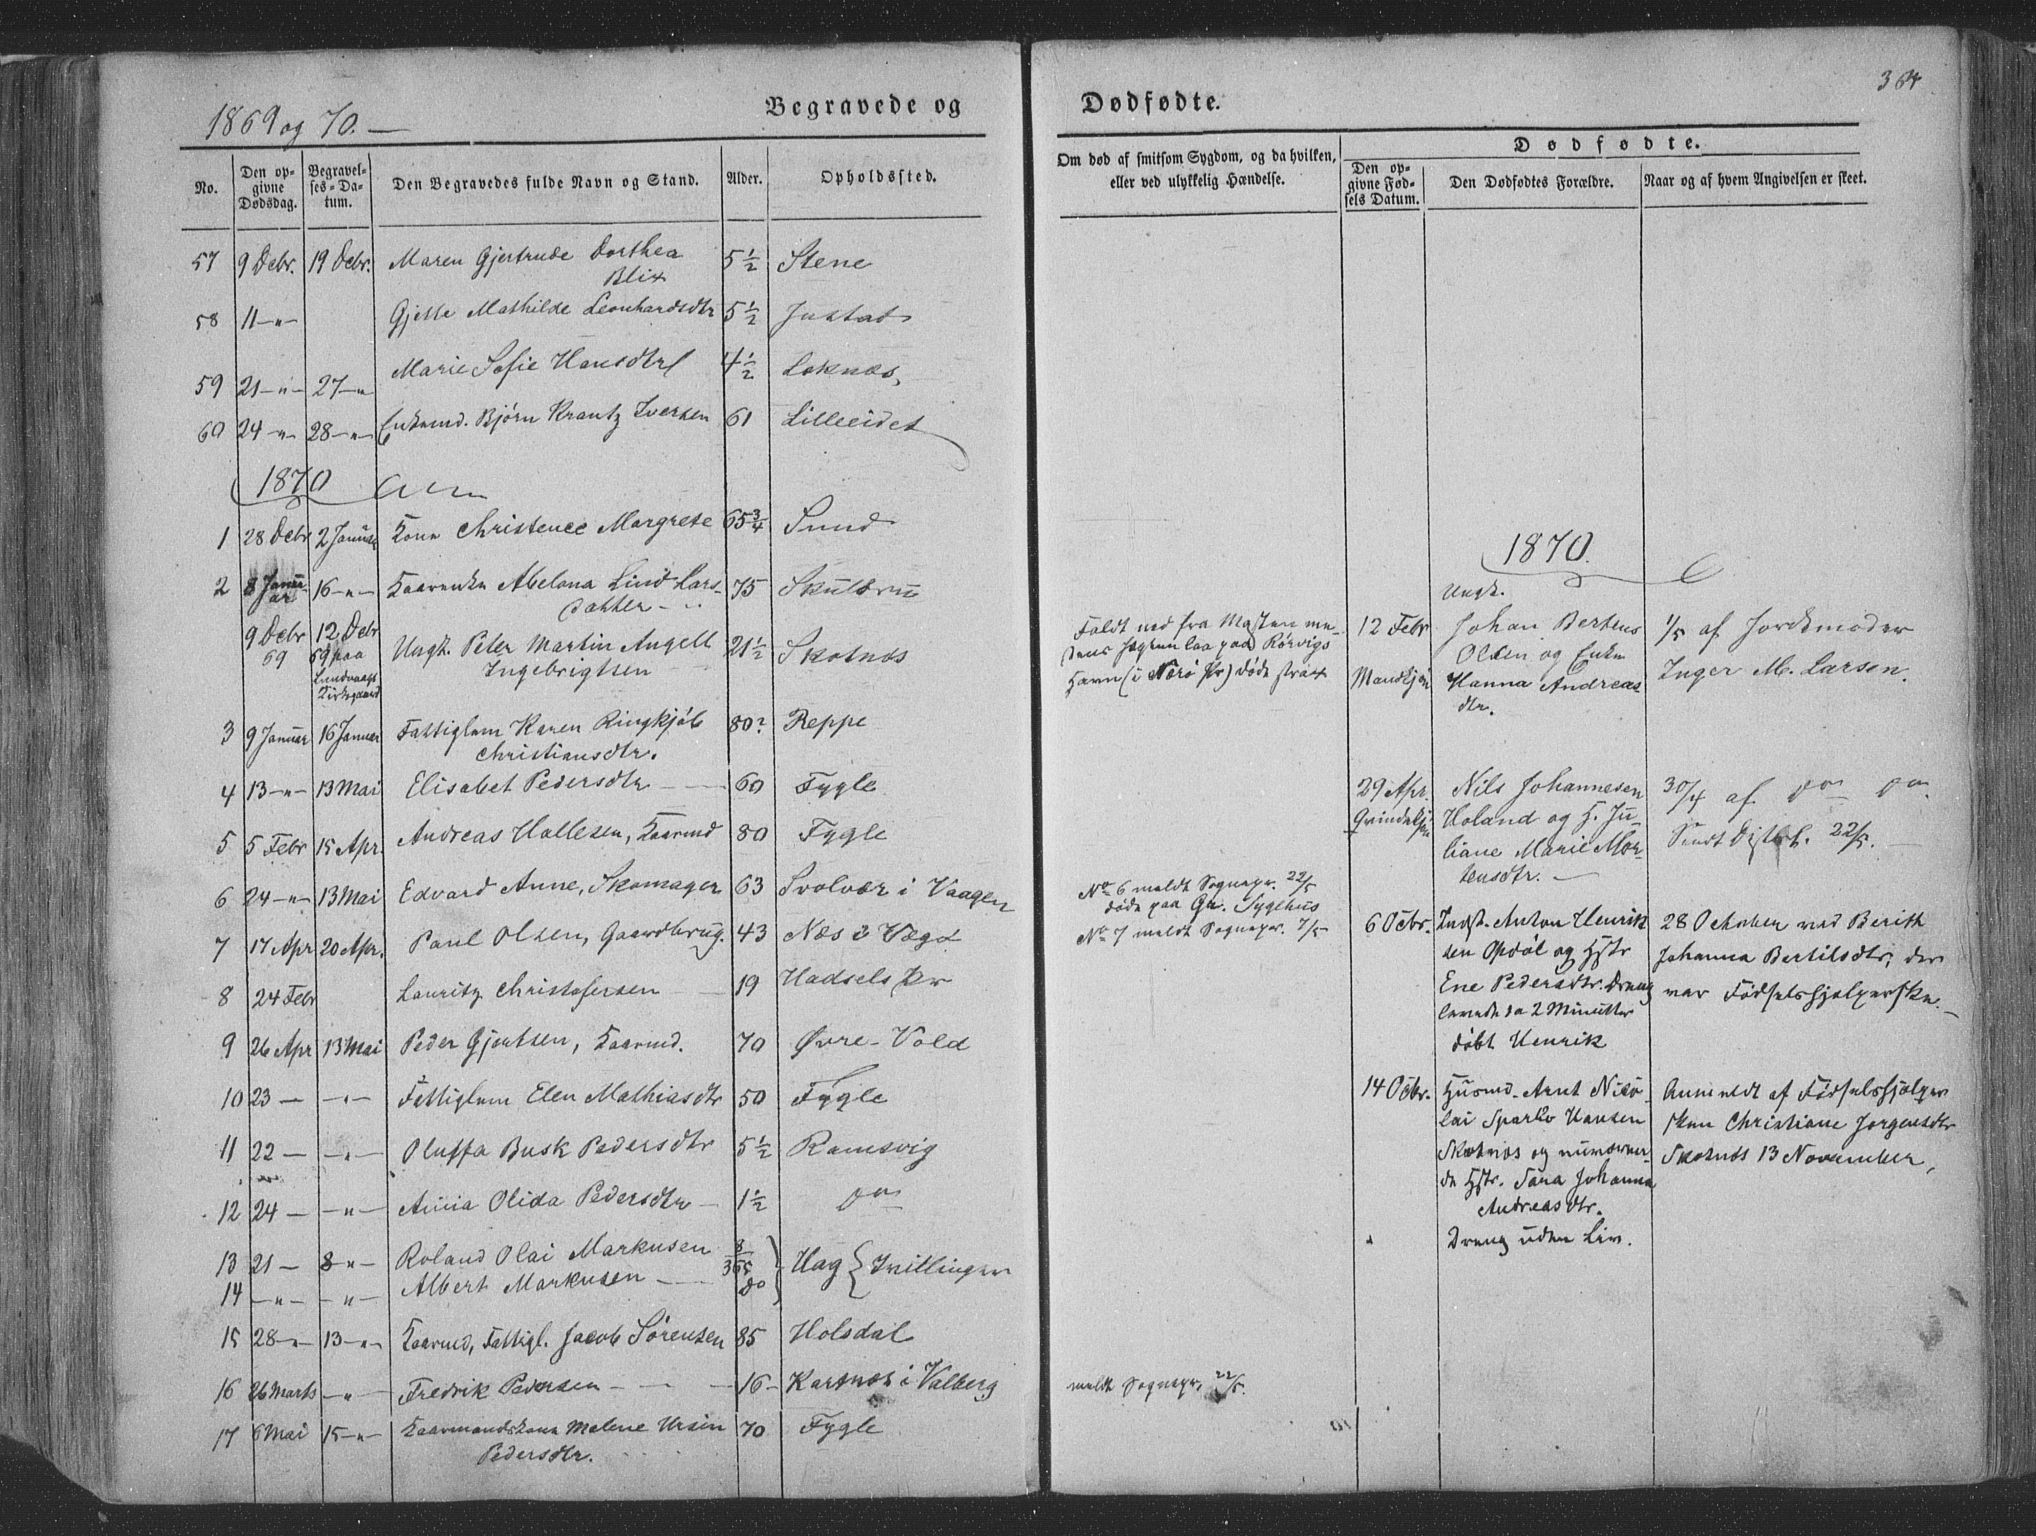 1869 og 70.
Begravede og
Dødfødte.
364
No.
Den opgivne Dødsdag.
Begravelses-Datum.
Den Begravedes fulde Navn og Stand.
Alder.
Opholdssted.
Om død af smitsom Sygdom, og da hvilken, eller ved ulykkelig Hændelse.
Dødfødte.
Den opgivne Fødsels Datum.
Den Dødfødtes Forældre.
Naar og af hvem Angivelsen er skeet.
57 9 Debr. 19 Debr. Maren Gjertrude Dorthea 5 1/2 Stene
Blix
58 11 -"- Gjette Mathilde Leonhardsdtr 5 1/2 Justad
59 21 -"- 27 -" Marie Sofie Hansdtr 4 1/2 Leknæs,
60 24 -"- 28 -"- Enkemd. Bjørn Krantz Iversen 61 Lilleeidet
1870
1 28 Debr 2 Januar Kone Christence Margrete 65 3/4 Sund
2 8 Januar 16 -"- Kaarenke Abelona Lind Lars- 75
datter
9 Debr 69 12 Debr 69 paa Ungk. Peter Martin Angell 21 1/2 Skotnæs
Lundvaags Kirkegaard Ingebrigtsen
3 9 Januar 16 Januar Fattiglem Karen Ringkjøb 80? Reppe
Christiansdtr.
4 13 -"- 13 Mai Elisabet Pedersdtr 60 Fygle
5 5 Febr 15 Apr. Andreas Hallesen, Kaarmd 80 Fygle
6 24 -"- 13 Mai Edvard Anne, Skomager 63 Svolvær i Vaagen
7 17 Apr 20 Apr. Paul Olsen, Gaardbrug. 43 Næs i Vegø
8 24 Febr Lauritz Christofersen 19 Hadsels Pr
9 26 Apr 13 Mai Peder Gjertsen, Kaarmd. 70 Øvre-Vold
10 23 — -"- Fattiglem Elen Mathiasdtr 50 Fygle
11 22 — -"- Oluffa Busk Pedersdtr 5 1/2 Ramsvig
12 24 — -"- Anna Olida Pedersdtr 1 1/2 do
13 21 — 8 -"- Roland Olai Markusen 8/365 Hag { Tvillinger
14 -"- -"- Albert Markusen do
15 28 -"- 13 -"- Kaarmd, Fattigl. Jacob Sørensen 85 Holsdal
16 26 Marts -"- Fredrik Pedersen 16 Kartnæs i Valberg
17 6 Mai 15 -"- Kaarmandskone Malene Ursin 70 Fygle
Pedersdtr.
Faldt ned fra Masten me-
dens Jægten laa paa Rørvigs
Havn (i Nærø Pr) døde strax
No 6 meldt Sognepr. 22/5
døde paa Gr. Sygehus
No 7 meldt Sognepr. 7/5
meldt Sognepr. 22/5.
1870.
Ungk.
12 Febr Johan Berteus 1/5 af Jordemoder
Olsen og Enke Inger M. Larsen.
Mandkjøn Hanna Andreas
dtr.
29 Apr. Nils Johannesen 30/4 af do do
Qvindekjøn Holand og H. Ju- Sendt Distl. 22/5.
liane Marie Mor-
tensdtr.
6 Octbr. Indst. Anton Henrik 28 October ved Berith
sen Opdøl og Hstr Johanna Bertilsdtr, der
Ene Pedersdtr. Dreng var Fødselshjelperske.
levede ca 2 Minutter
døbt Henrik
14 Octbr. Husmd. Arnt Nico- Anmeldt af Fødselshjelper
lai Sparbo Hansen sken Christiane Jørgensdtr
Skotnæs og nuværen- Skotnæs 13 November,
de Hstr. Sara Johanna
Andreasdtr.
Dreng uden Liv.